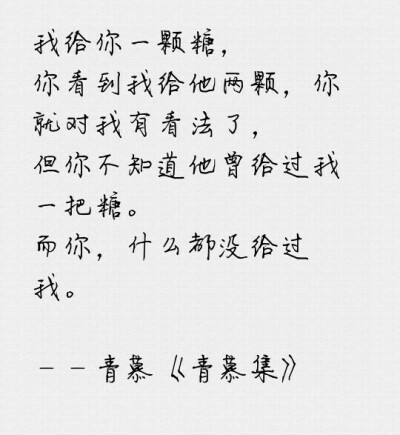 我给你一颗糖，
你看到我给他两颗，你
就对我有看法了，
但你不知道他曾给过我
一把糖。
而你，什么都没给过
我。
--青慕《青慕集》